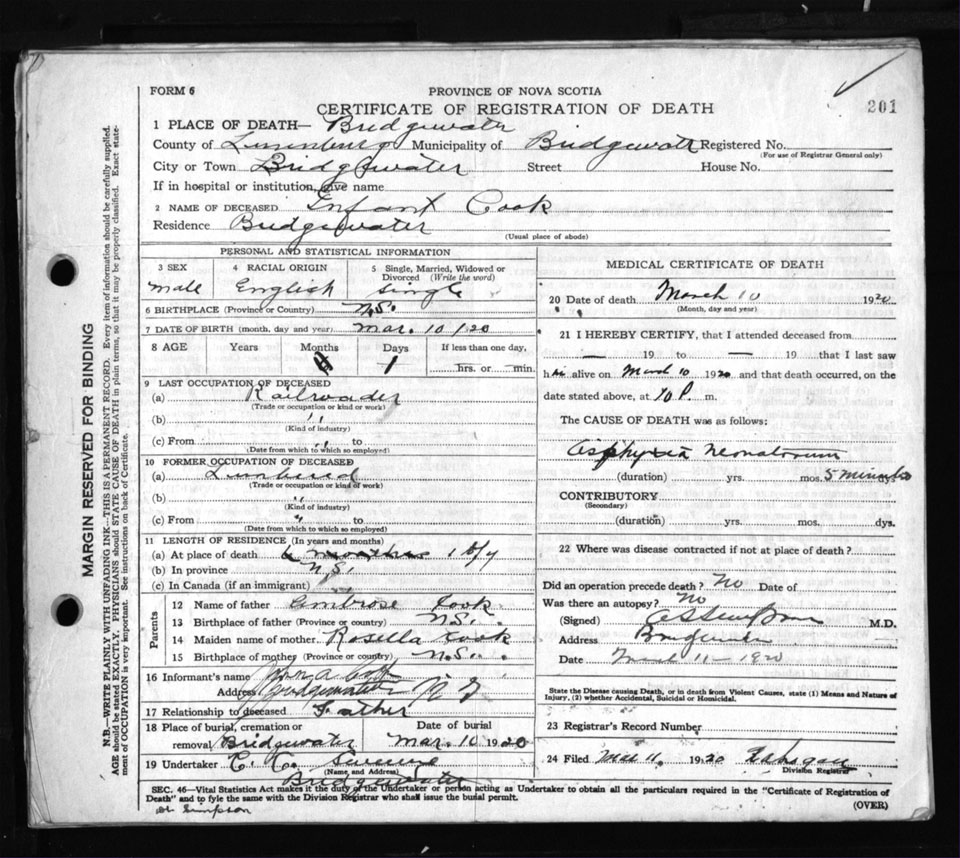 FORM 6
PROVINCE OF NOVA SCOTIA
CERTIFICATE OF REGISTRATION OF DEATH
201
1 PLACE OF DEATH— Bridgewater
County of Lunenburg Municipality of Bridgewater Registered No.
(For use of Registrar General only)
City or Town Bridgewater Street House No.
If in hospital or institution, give name
2 NAME OF DECEASED Infant Cook
Residence Bridgewater
(Usual place of abode)
PERSONAL AND STATISTICAL INFORMATION
3 SEX 4 RACIAL ORIGIN 5 Single, Married, Widowed or Divorced (Write the word)
male English single
6 BIRTHPLACE (Province or Country) N.S.
7 DATE OF BIRTH (month, day and year) Mar. 10/20
8 AGE Years Months Days If less than one day,
1 hrs. or min.
9 LAST OCCUPATION OF DECEASED
(a) Railroader
(Trade or occupation or kind or work)
(b) "
(Kind of industry)
(c) From " to
(Date from which to which so employed)
10 FORMER OCCUPATION OF DECEASED
(a)
(Trade or occupation or kind of work)
(b) "
(Kind of industry)
(c) From " to
(Date from which to which so employed)
11 LENGTH OF RESIDENCE (In years and months)
(a) At place of death 6 months 1
(b) In province N.S.
(c) In Canada (if an immigrant)
Parents
12 Name of father Ambrose Cook
13 Birthplace of father (Province or country) N.S.
14 Maiden name of mother Rosella Cook
15 Birthplace of mother (Province or country) N.S.
16 Informant's name John A
Address Bridgewater N S
17 Relationship to deceased Father
18 Place of burial, cremation or removal Bridgewater
Date of burial Mar. 10 1920
19 Undertaker
(Name and Address)
Bridgewater
MEDICAL CERTIFICATE OF DEATH
20 Date of death March 10 1920
(Month, day and year)
21 I HEREBY CERTIFY, that I attended deceased from
— 19 to — 19 that I last saw
him alive on March 10 1920 and that death occurred, on the
date stated above, at 10 P. m.
The CAUSE OF DEATH was as follows:
Asphyxia Neonatorum
(duration) yrs. mos. 5 minutes dys.
CONTRIBUTORY
(Secondary)
(duration) yrs. mos. dys.
22 Where was disease contracted if not at place of death?
Did an operation precede death? No Date of
Was there an autopsy? No
(Signed) M.D.
Address Bridgewater
Date March 11 - 1920
State the Disease causing Death, or in death from Violent Causes, state (1) Means and Nature of
Injury, (2) whether Accidental, Suicidal or Homicidal.
23 Registrar's Record Number
24 Filed Mar 11. 1920
Division Registrar
SEC. 46—Vital Statistics Act makes it the duty of the Undertaker or person acting as Undertaker to obtain all the particulars required in the "Certificate of Registration of
Death" and to fyle the same with the Division Registrar who shall issue the burial permit.
(OVER)
Dr Simpson
MARGIN RESERVED FOR BINDING
N.B.—WRITE PLAINLY WITH UNFADING INK—THIS IS A PERMANENT RECORD. Every item of information should be carefully supplied.
AGE should be stated EXACTLY. PHYSICIANS should STATE CAUSE OF DEATH in plain terms, so that it may be properly classified. Exact statement of OCCUPATION is very important. See instructions on back of Certificate.